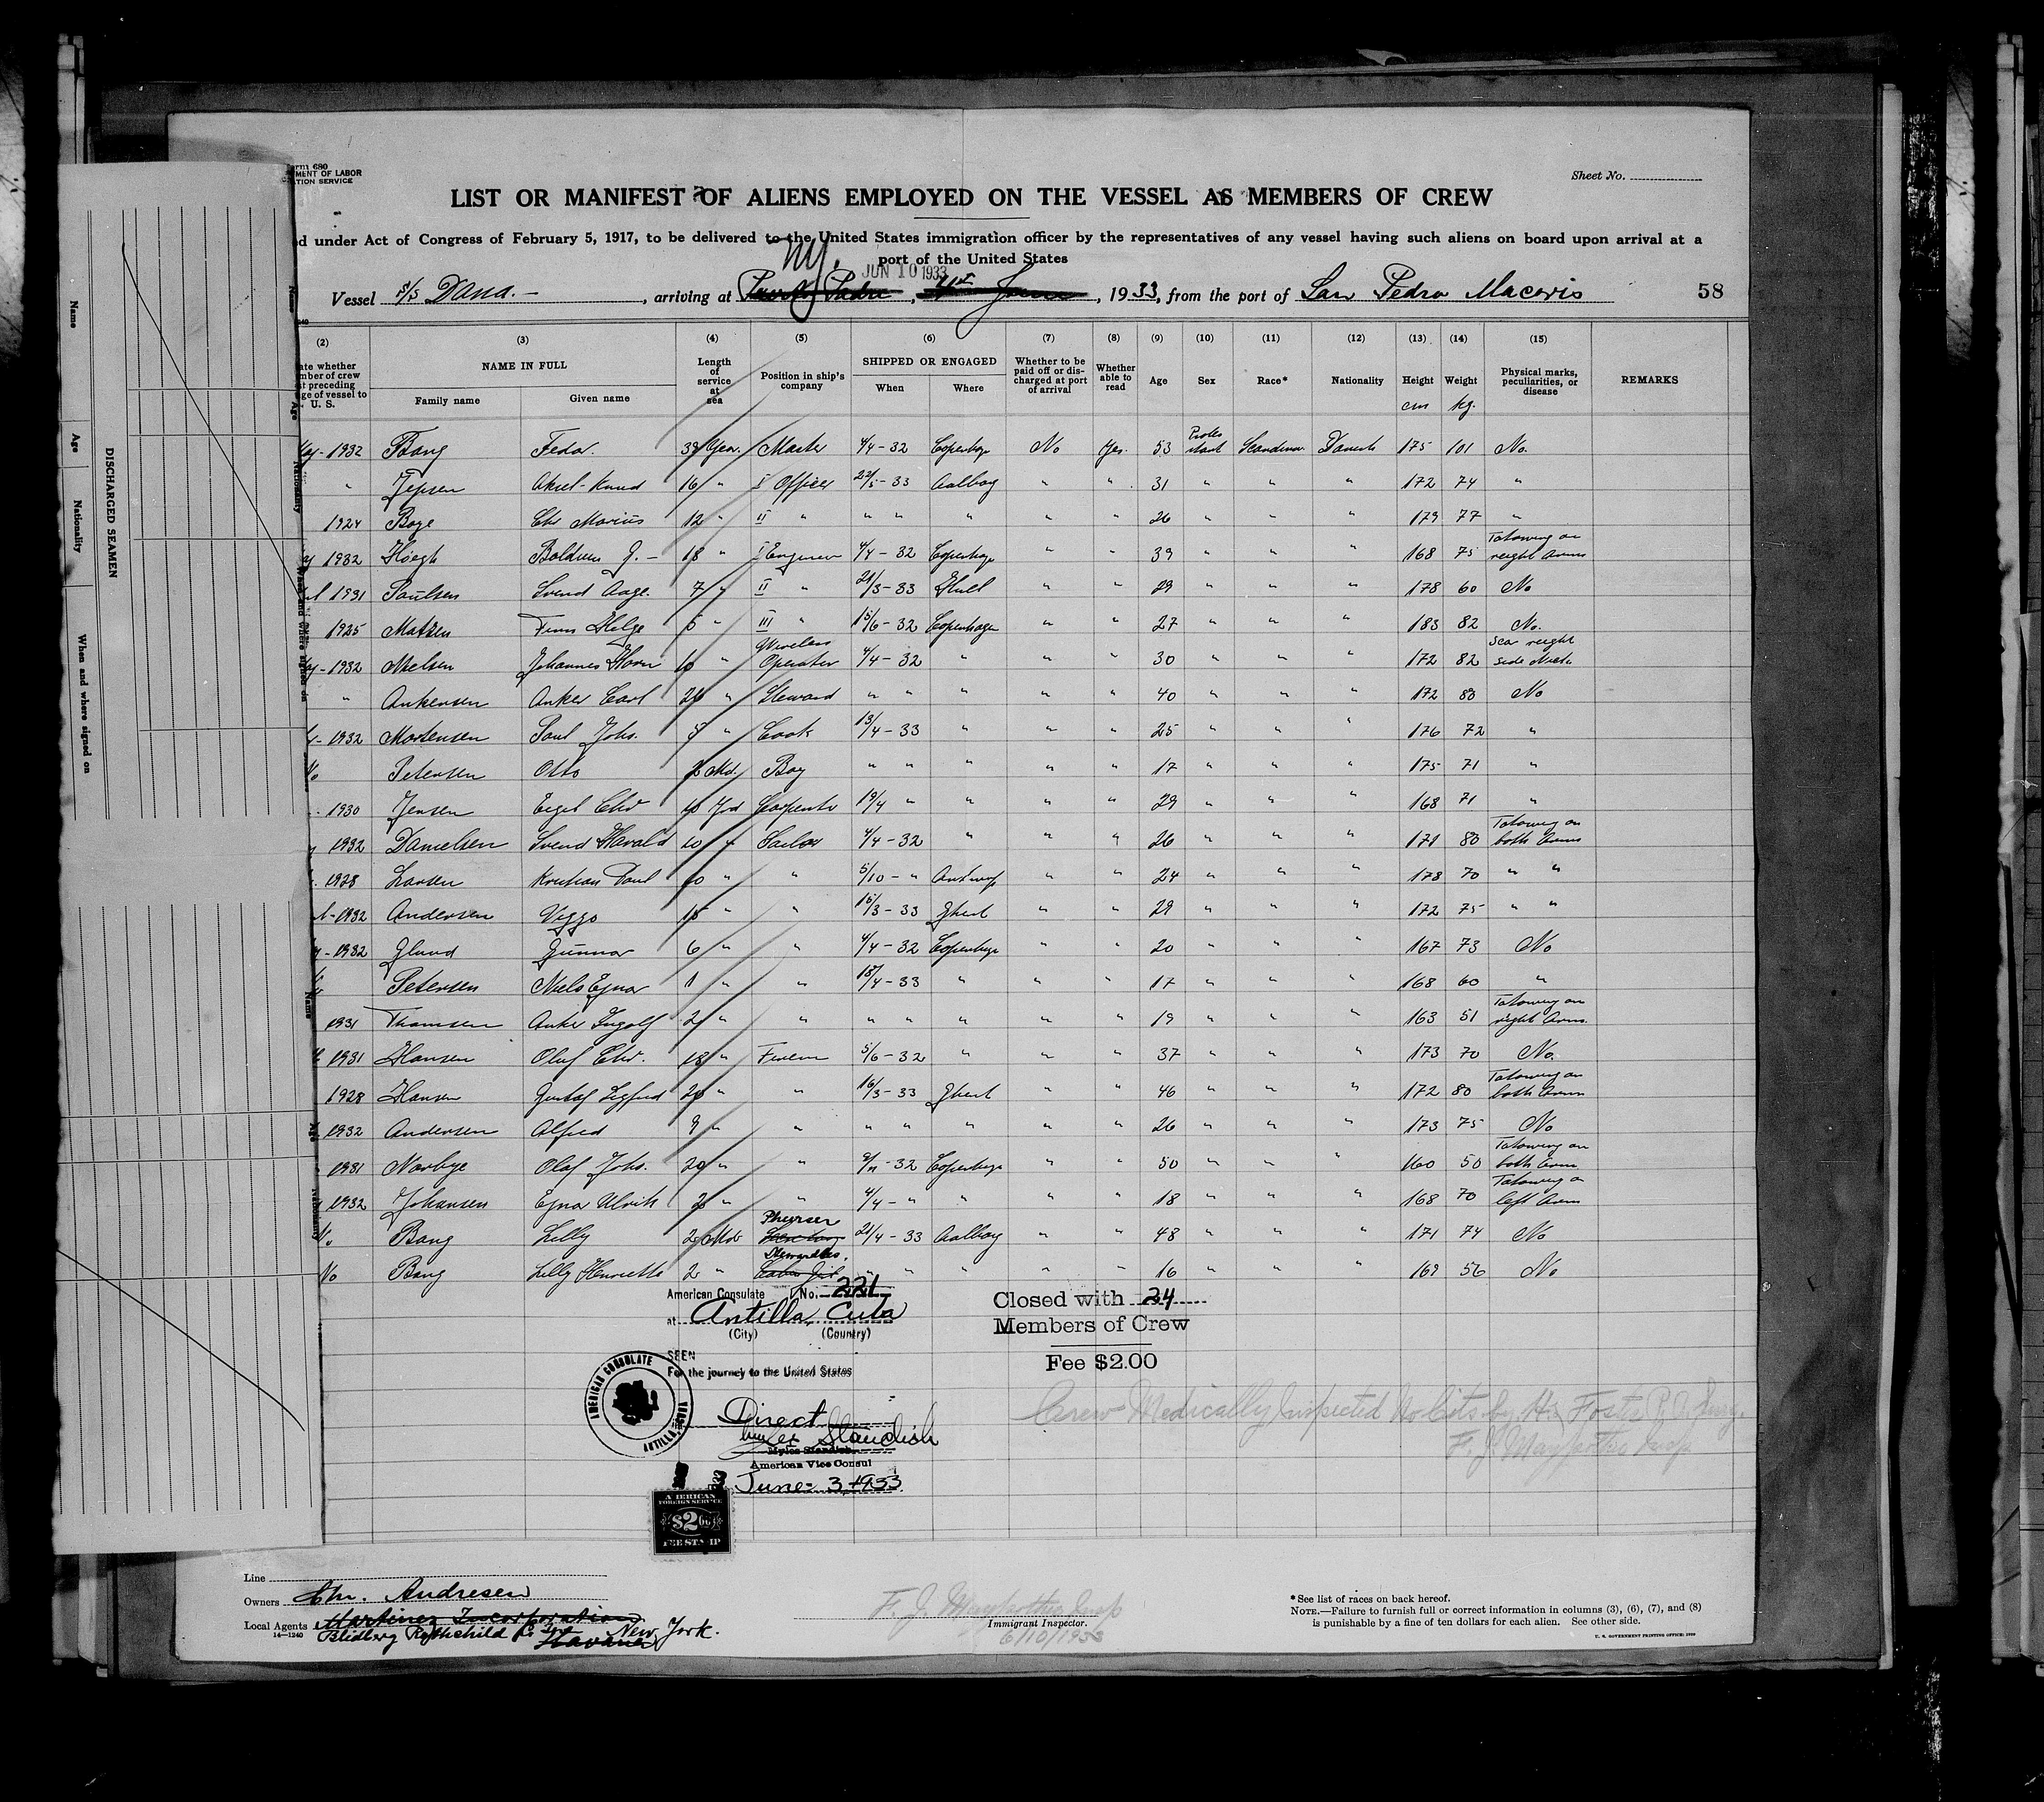 Form 680
MENT OF LABOR
TION SERVICE
Sheet No.
LIST OR MANIFEST OF ALIENS EMPLOYED ON THE VESSEL AS MEMBERS OF CREW
d under Act of Congress of February 5, 1917, to be delivered to the United States immigration officer by the representatives of any vessel having such aliens on board upon arrival at a
port of the United States
N.Y. JUN 10 1933
Vessel S/S Dana.- , arriving at Puerto Padre, June, 1933, from the port of San Pedro Macoris 58
(2) (3) (4) (5) (6) (7) (8) (9) (10) (11) (12) (13) (14) (15)
ate whether
mber of crew
t preceding
ge of vessel to
U. S.
NAME IN FULL
Family name
Given name
Length
of
service
at
sea
Position in ship's
company
SHIPPED OR ENGAGED
When
Where
Whether to be
paid off or dis-
charged at port
of arrival
Whether
able to
read
Age
Sex
Race*
Nationality
Height
cm
Weight
kg.
Physical marks,
peculiarities, or
disease
REMARKS
1932 Bang Fedor. Master 4/4-32 Copenhag No Yes. 53 Protes tant Scandinav. Danish 175 101 No.
" Jepsen Aksel-Knud 16 " I Officer 22/5-33 Aalborg " " 31 " " " 172 74 "
1924 Boge Chr Marius 12 " II " " " " " " 26 " " " 179 77 "
1932 Høegh Baldvin J.- 18 " I Engineer 4/4-32 Copenhag " " 39 " " " 168 75 Tatowing on reight Arms
1931 Paulsen Svend Aage. 7 " II " 21/3-33 Hull " " 29 " " " 178 60 No
1925 Matzen Finn Helge 5 " III " 15/6-32 Copenhagen " " 27 " " " 183 82 No.
1932 Nielsen Johannes 10 " Wireless Operator 4/4-32 " " " 30 " " " 172 82 Scar reight side
" Ankersen Anker Carl " Steward " " " " " 40 " " " 172 80 No
1932 Mortensen Poul Johs. " Cook 13/4-33 " " " 25 " " " 176 72 "
No Petersen Otto Md. Boy " " " " " 17 " " " 175 71 "
1930 Jensen Ejgil Chr Carpentr 19/4 " " " " 29 " " " 168 71 "
1932 Danielsen Svend Harald 10 " Sailor 4/4-32 " " " 26 " " " 171 80 Tatowing on both Arms
1928 Larsen Kristian Poul 10 " " 5/10-" Antwrp " " 24 " " " 178 70 " "
1932 Andersen Viggo 15 " " 16/3-33 Ghent " " 29 " " " 172 75 " "
1932 Glund Gunnar 6 " " 4/4-32 Copenhage " " 20 " " " 167 73 No
Petersen Niels Ejnar 1 " " 18/4-33 " " " 17 " " " 168 60 "
1931 Thomsen Anker Ingolf 2 " " " " " " " 19 " " " 163 51 Tatowing on right Arms.
1931 Hansen Oluf Chr. 18 " Firem 5/6-32 " " " 37 " " " 173 70 No.
1928 Hansen Gustaf Sigfred 20 " " 16/3-33 Ghent " " 46 " " " 172 80 Tatowing on both Arms
1932 Andersen Alfred 9 " " " " " " " 26 " " " 173 75 No
1931 Norbye Olaf Johs. 20 " " 9/11-32 Copenhage " " 50 " " " 160 50 Tatowing on both Arm
1932 Johansen Ejnar Ulrik " " 4/4-" " " " 18 " " " 168 70 Tatowing on left Arm
No Bang Lilly 2 Mdr Phurser 21/4-33 Aalborg " " 48 " " " 171 74 No
Stewardess.
No Bang Lilly Henriette 2 " " " " " " 16 " " " 169 56 No
American Consulate No. 221
at Antilla, Cuba
(City) (Country)
SEEN
For the journey to the United States
Direct
Myles Standish
Myles Standish
American Vice Consul
June 3, 1933
AMERICAN CONSULATE
ANTILLA, CUBA
AMERICAN
FOREIGN SERVICE
$2
FEE STAMP
Closed with 24
Members of Crew
Fee $2.00
Crew Medically Inspected No Certs by H. Foster P.A. Surg.
Line
Owners Chr. Andresen
Local Agents Martinez Incorporation
Blidberg Rothchild New York.
Havana
14—1240
Immigrant Inspector.
6/10/1933
*See list of races on back hereof.
NOTE.—Failure to furnish full or correct information in columns (3), (6), (7), and (8)
is punishable by a fine of ten dollars for each alien. See other side.
U. S. GOVERNMENT PRINTING OFFICE
DISCHARGED SEAMEN
Name
Age
Nationality
When and where signed on